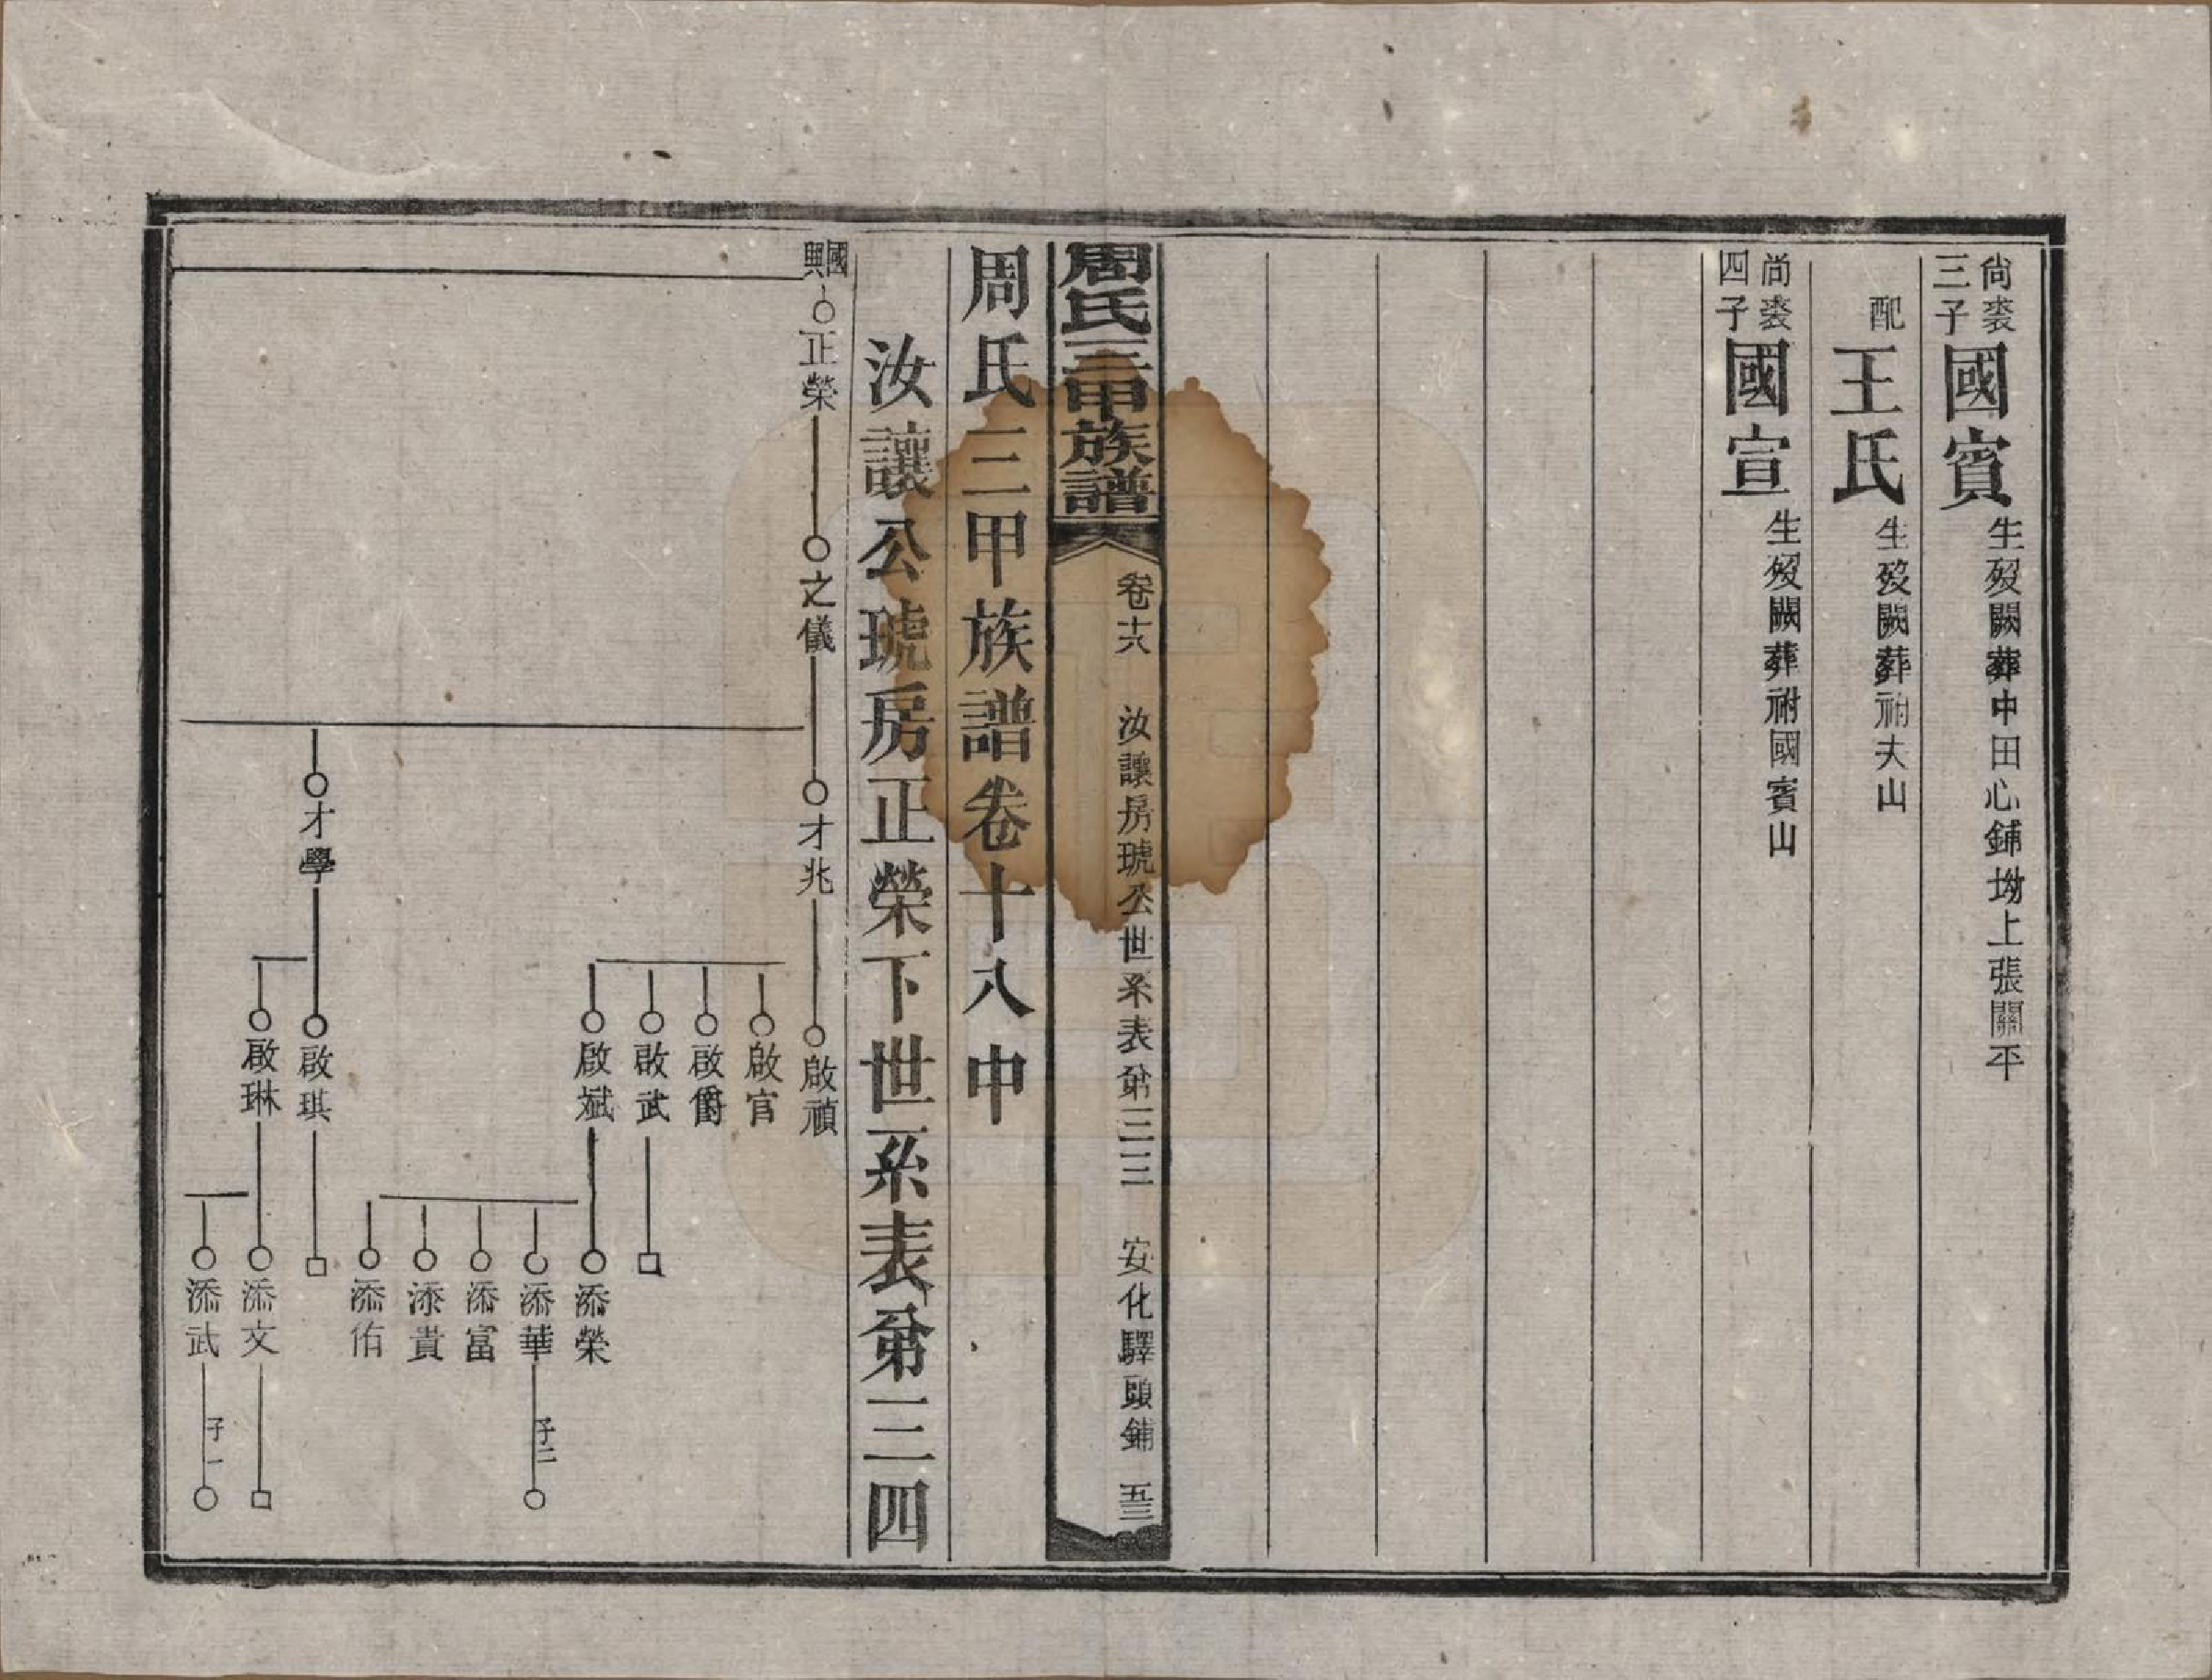 尚裘三子國賓生歿闕葬中田心鋪坳上張關平
配王氏生歿闕葬祔夫山
尚裘四子國宣生歿闕葬祔國賓山
周氏三甲族譜 卷十六 汝讓房琥公世系表第三三 安化驛頭鋪 五三
周氏三甲族譜卷十八中
汝讓公琥房正榮下世系表第三四
國興
正榮
之儀
才兆
啟禎
啟官
啟爵
啟武
啟斌
添榮
添華
子二
添富
添貴
添佑
才學
啟琪
啟琳
添文
添武
子一